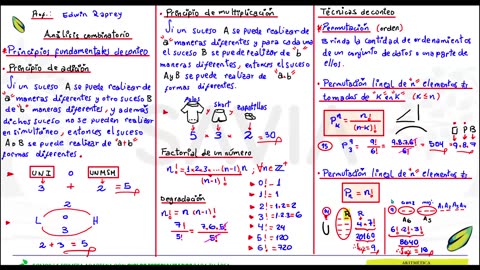 Prof: Edwin Raprey
Análisis combinatorio
* Principios fundamentales de conteo
• Principio de adición
Si un suceso A se puede realizar de
"a" maneras diferentes y otro suceso B
de "b" maneras diferentes, y además
dichos sucesos no se pueden realizar
en simultáneo, entonces el suceso
A o B se puede realizar de "a+b"
formas diferentes.
UNI O UNMSM
3 + 2 = 5
2
L O H
3
2 + 3 = 5
• Principio de multiplicación
Si un suceso A se puede realizar de
"a" maneras diferentes y para cada una
el suceso B se puede realizar de "b"
maneras diferentes, entonces el suceso
A y B se puede realizar de "a.b"
formas diferentes.
Polos Short Zapatillas
5 . 3 . 2 = 30
Factorial de un número
n! = 1x2x3...(n-1)n ; ∀n∈Z+
0! = 1
1! = 1
2! = 1.2 = 2
3! = 1.2.3 = 6
4! = 24
5! = 120
6! = 720
Degradación
n! = n (n-1)!
7!/5! = 7.6.5!/5!
Técnicas de conteo
• Permutación (orden)
Brinda la cantidad de ordenamientos
de un conjunto de datos o una parte de
ellos.
• Permutación lineal de "n" elementos
tomados de "K en K" (K≤n)
P n K = n!/(n-K)!
O P B
= 9!/6! = 9.8.7.6!/6! = 504 = 9.8.7
• Permutación lineal de "n" elementos
Pn = n!
4.7!
20160
6!.2!.3!
8640
ARITMÉTICA